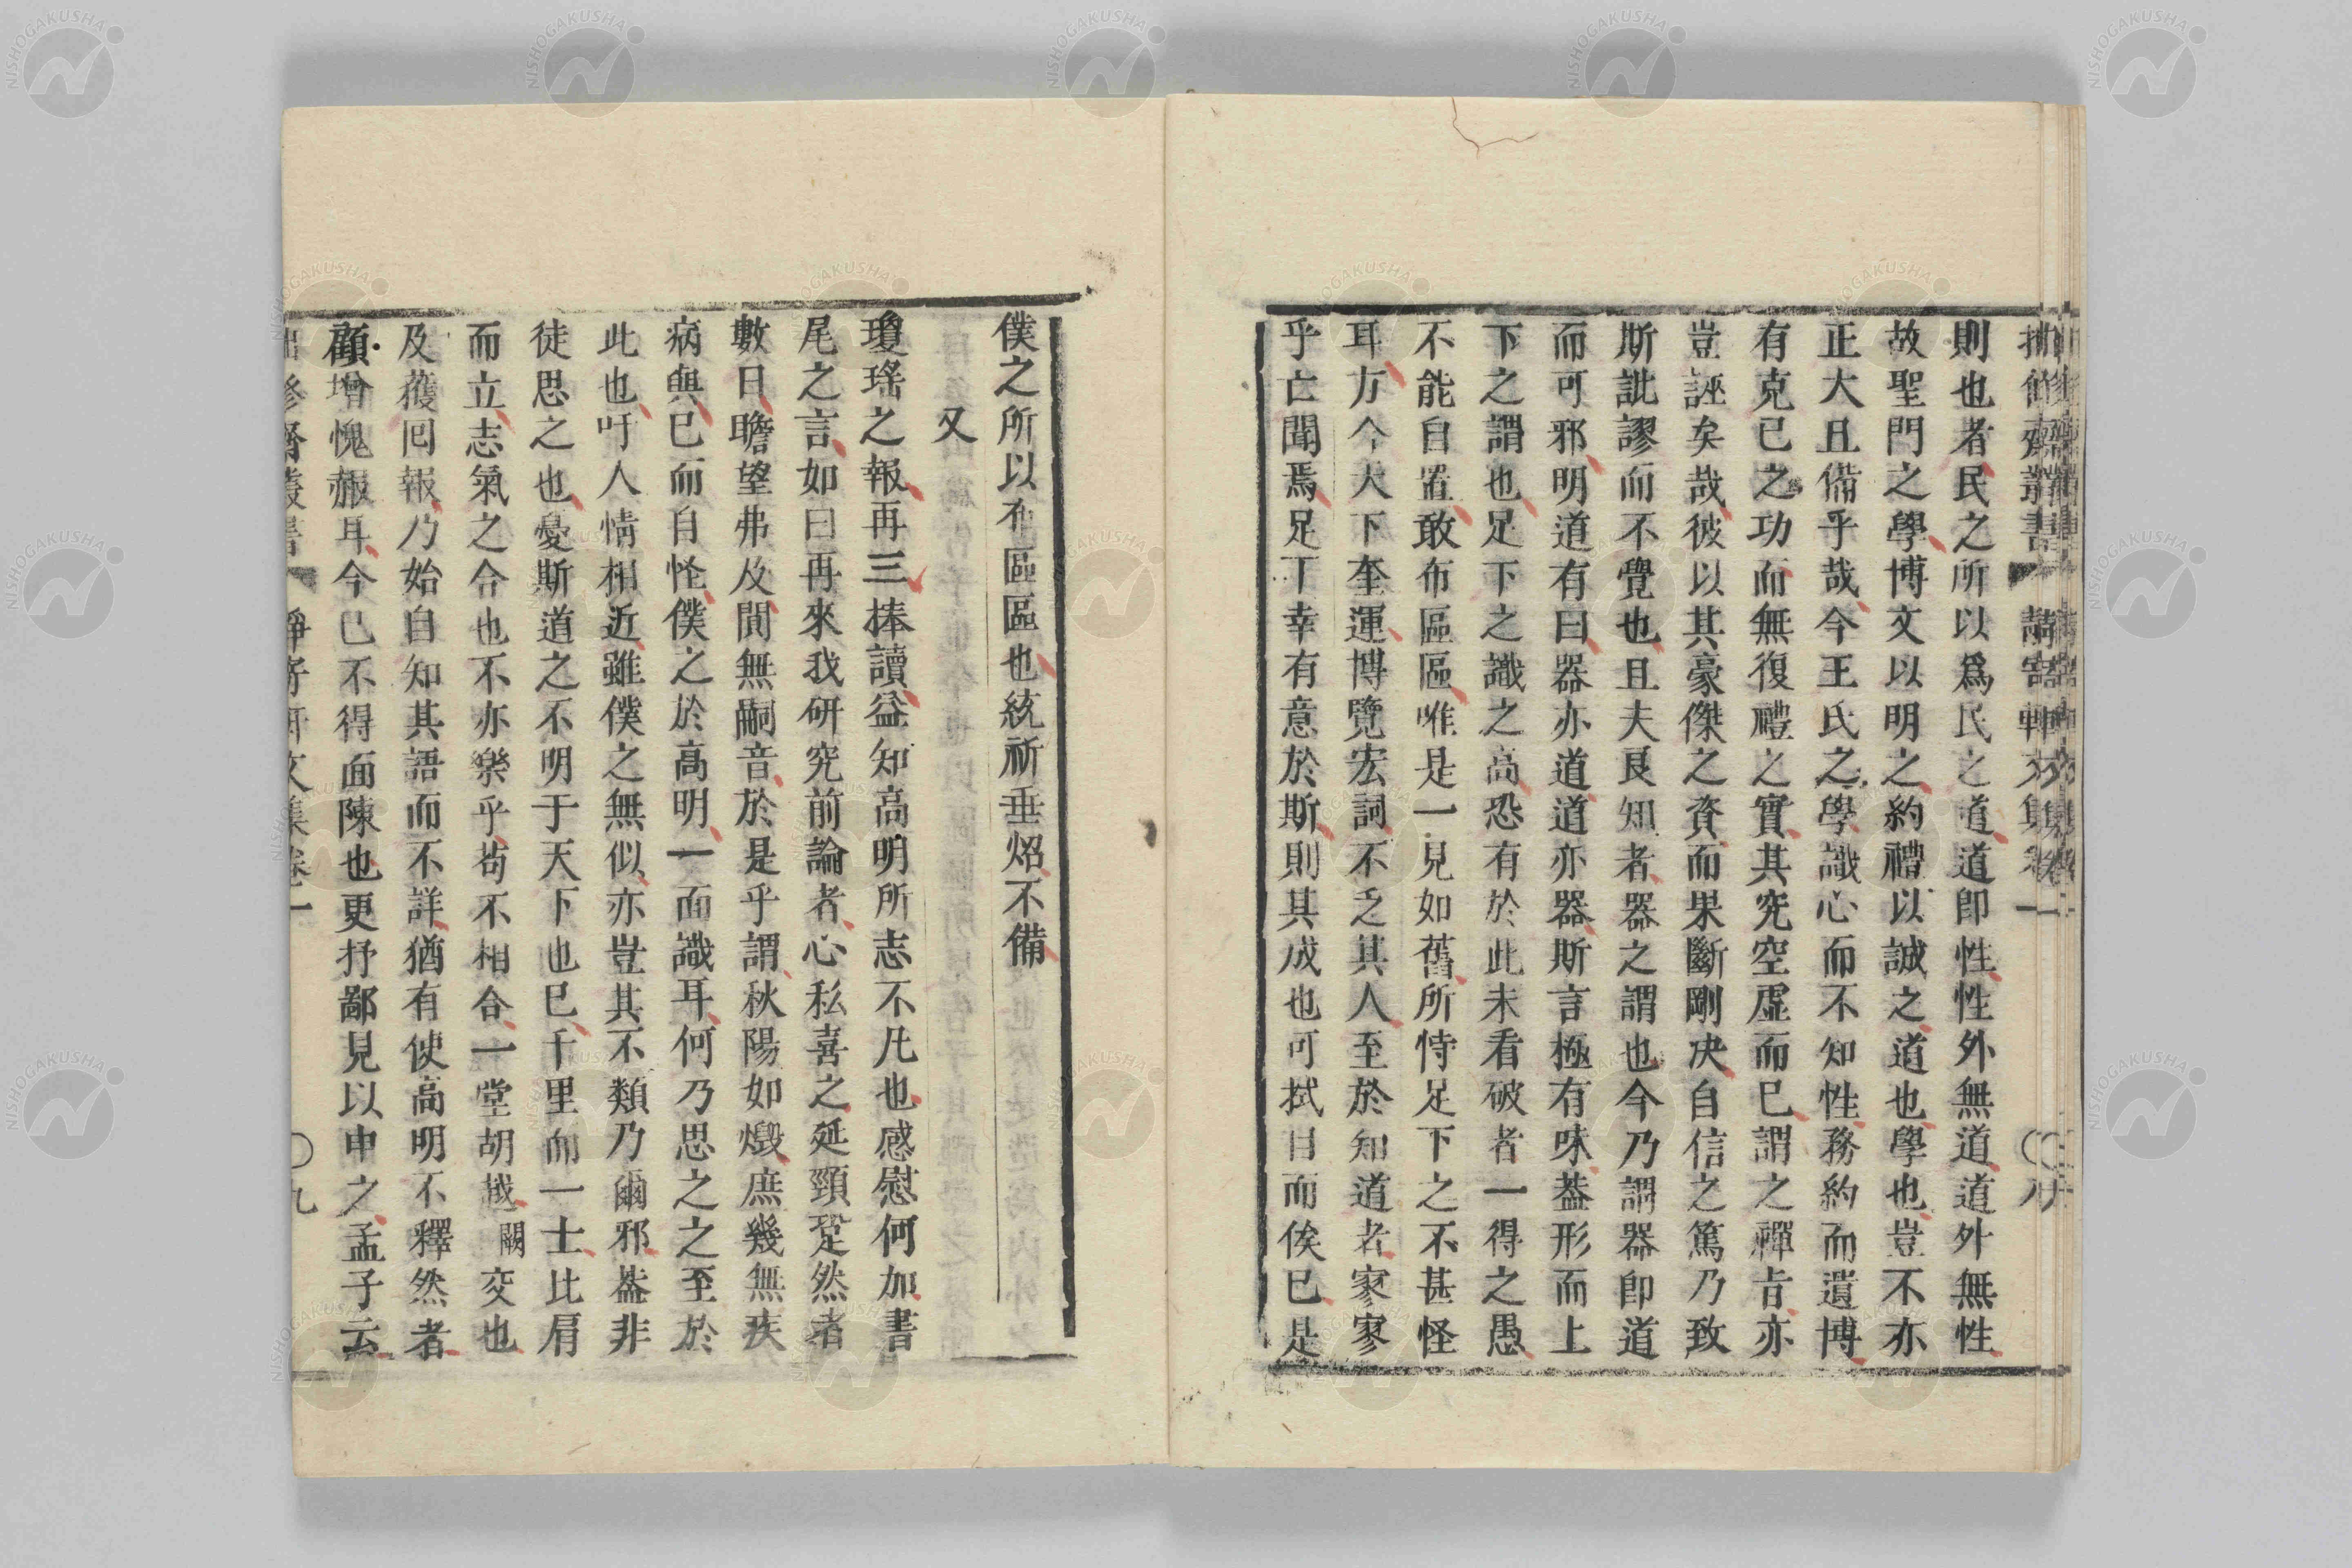 則也者民之所以爲民之道道即性性外無道道外無性
故聖門之學博文以明之約禮以誠之道也學也豈不亦
正大且備乎哉今王氏之學識心而不知性務約而遺博
有克已之功而無復禮之實其究空虛而已謂之禪旨亦
豈誣矣哉彼以其豪傑之資而果斷剛决自信之篤乃致
斯訛謬而不覺也且夫良知者器之謂也今乃謂器即道
而可邪明道有曰器亦道道亦器斯言極有味葢形而上
下之謂也足下之識之高恐有於此未看破者一得之愚
不能自置敢布區區唯是一見如舊所恃足下之不甚怪
耳方今天下奎運博覽宏詞不乏其人至於知道者寥寥
乎亡聞焉足下幸有意於斯則其成也可拭目而俟已是
僕之所以布區區也統祈垂炤不備
又
瓊瑤之報再三捧讀益知高明所志不凡也感慰何加書
尾之言如曰再來我研究前論者心私喜之延頸跫然者
數日瞻望弗及間無嗣音於是乎謂秋陽如燬庶幾無疾
病與已而自怪僕之於高明一面識耳何乃思之之至於
此也吁人情相近雖僕之無似亦豈其不類乃爾邪葢非
徒思之也憂斯道之不明于天下也已千里而一士比肩
而立志氣之合也不亦樂乎苟不相合一堂胡越闕交也
及蒦回報乃始自知其語而不詳猶有使高明不釋然者
顧增愧赧耳今已不得面陳也更抒鄙見以申之孟子云
九